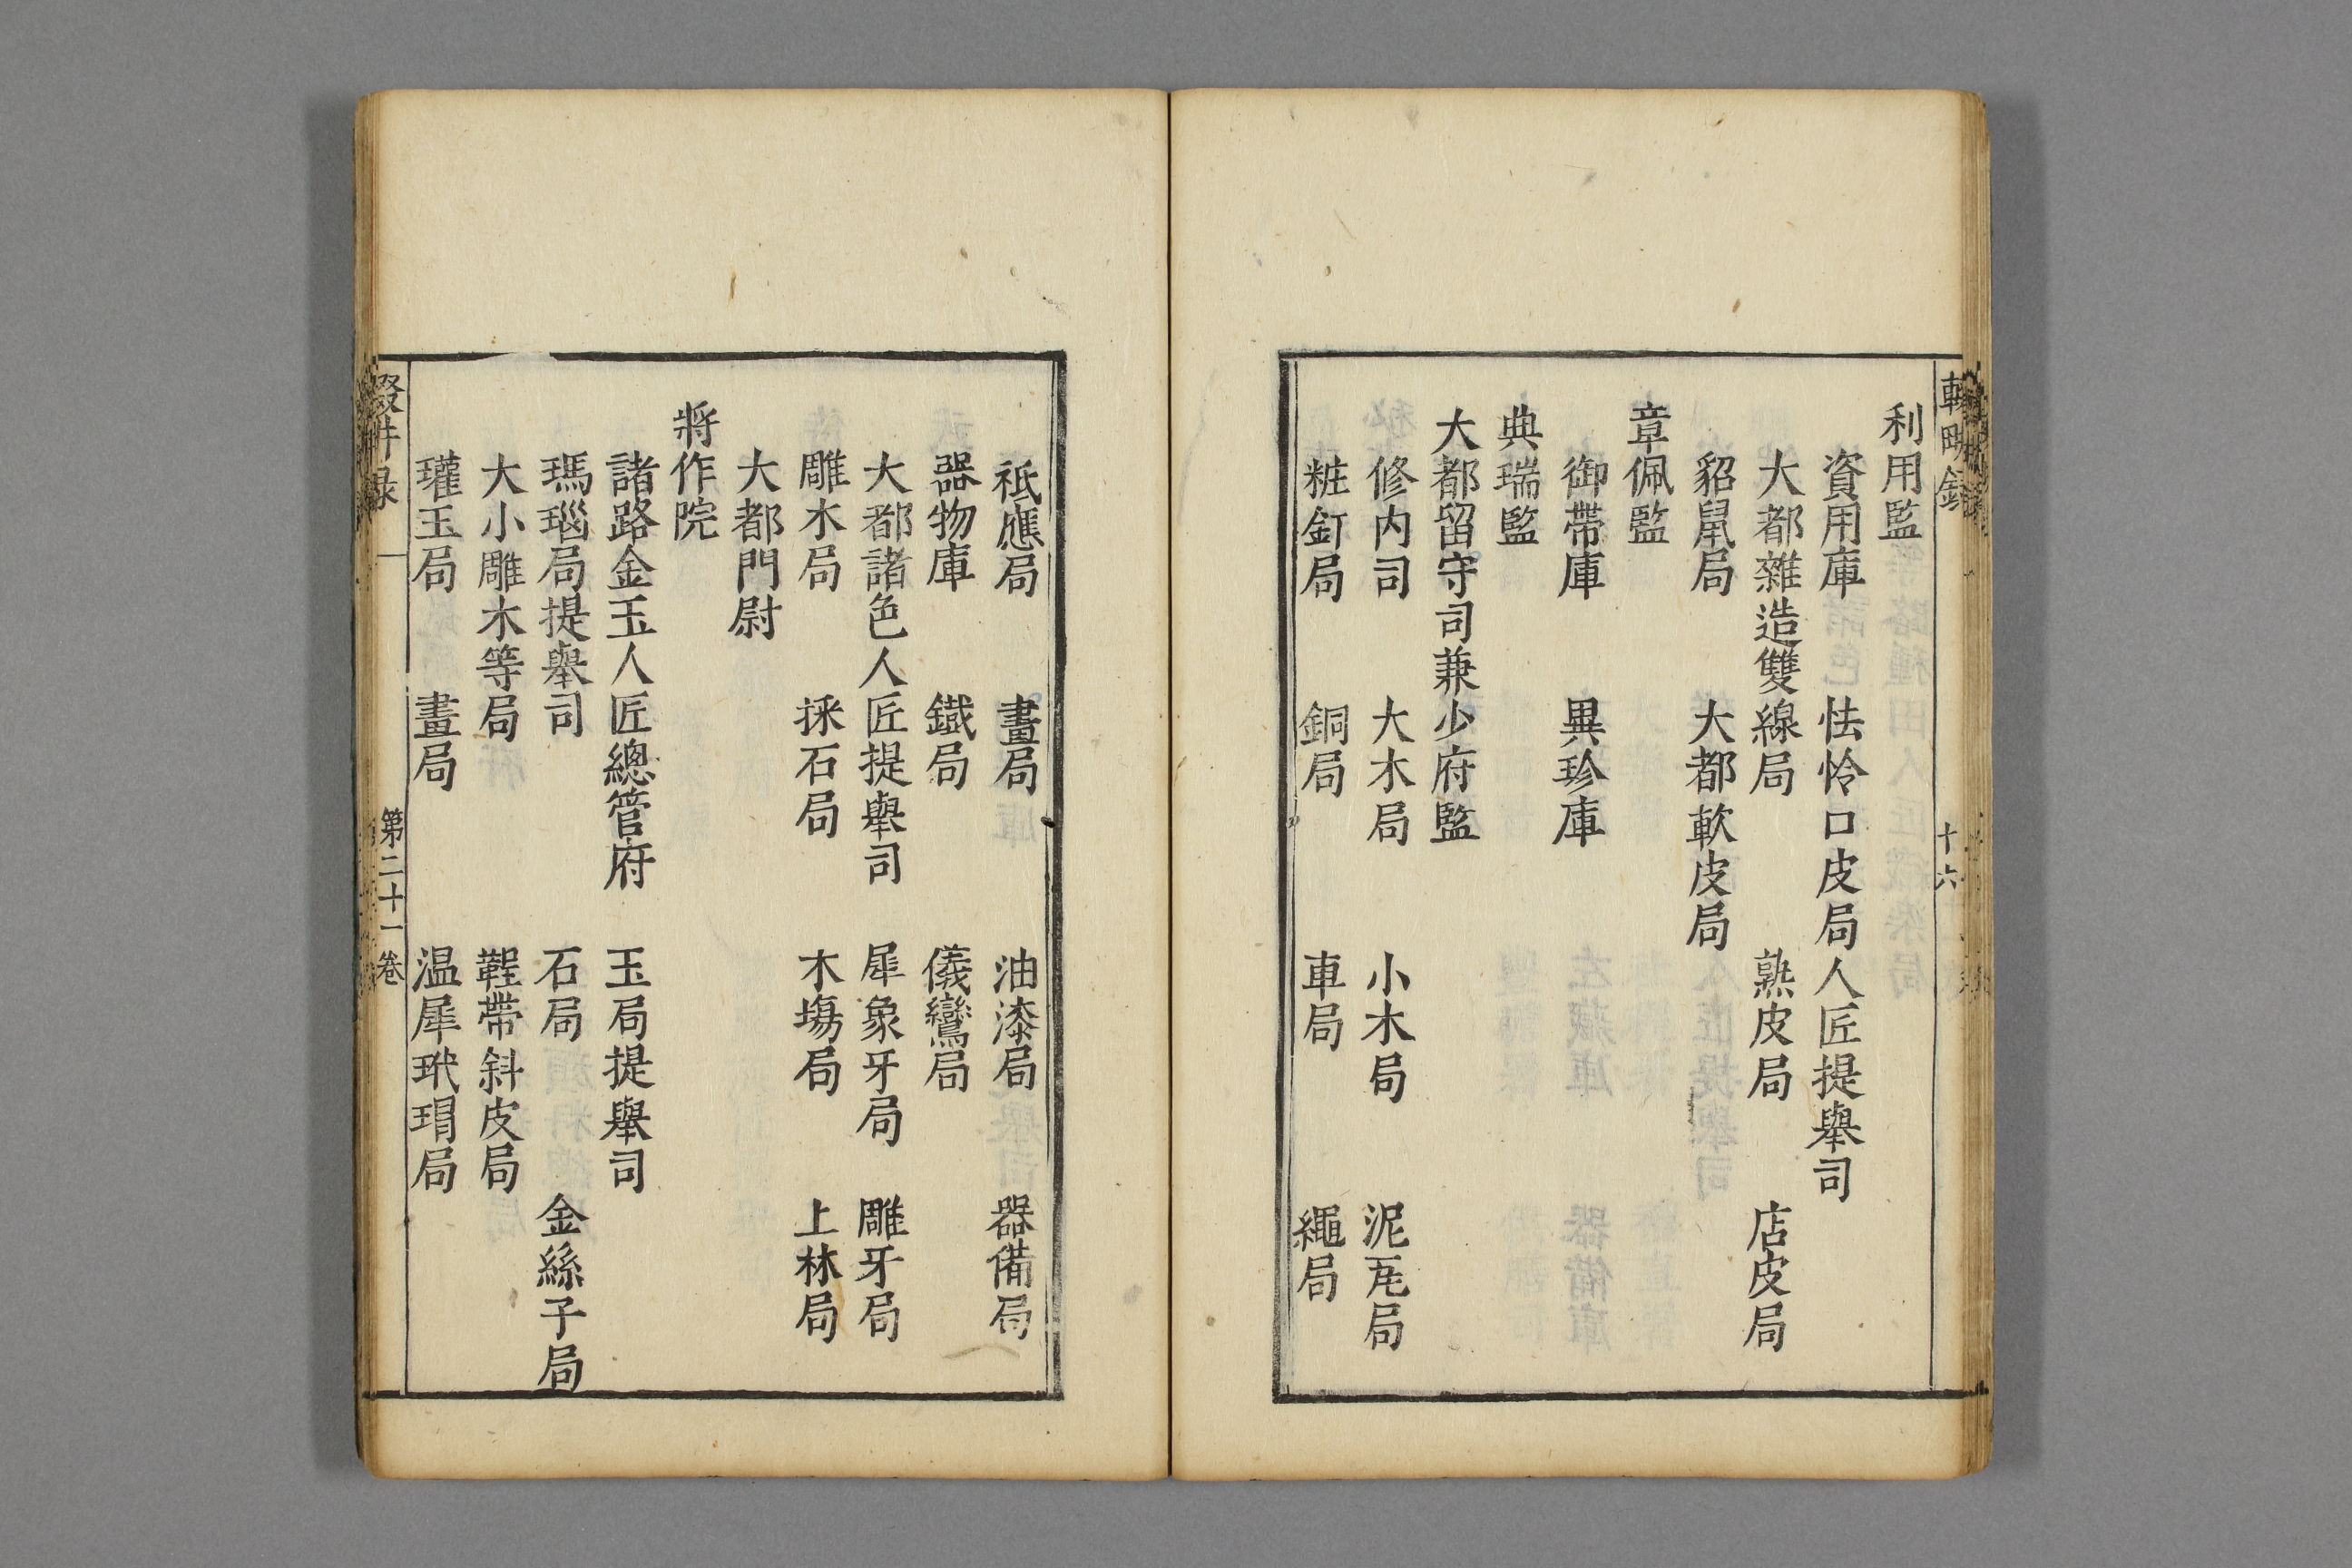 利用監
資用庫　怯怜口皮局人匠提舉司
大都雜造雙線局　熟皮局　店皮局
貂鼠局　大都軟皮局
章佩監
御帶庫　異珍庫
典瑞監
大都留守司兼少府監
修内司　大木局　小木局　泥瓦局
粧釘局　銅局　車局　繩局
十六
祗應局　畫局　油漆局　器備局
器物庫　鐵局　儀鸞局
大都諸色人匠提舉司　犀象牙局　雕牙局
雕木局　採石局　木塲局　上林局
大都門尉
將作院
諸路金玉人匠總管府　玉局提舉司
瑪瑙局提舉司　石局　金絲子局
大小雕木等局　鞓帶斜皮局
瓘玉局　畫局　温犀玳瑁局
第二十一卷